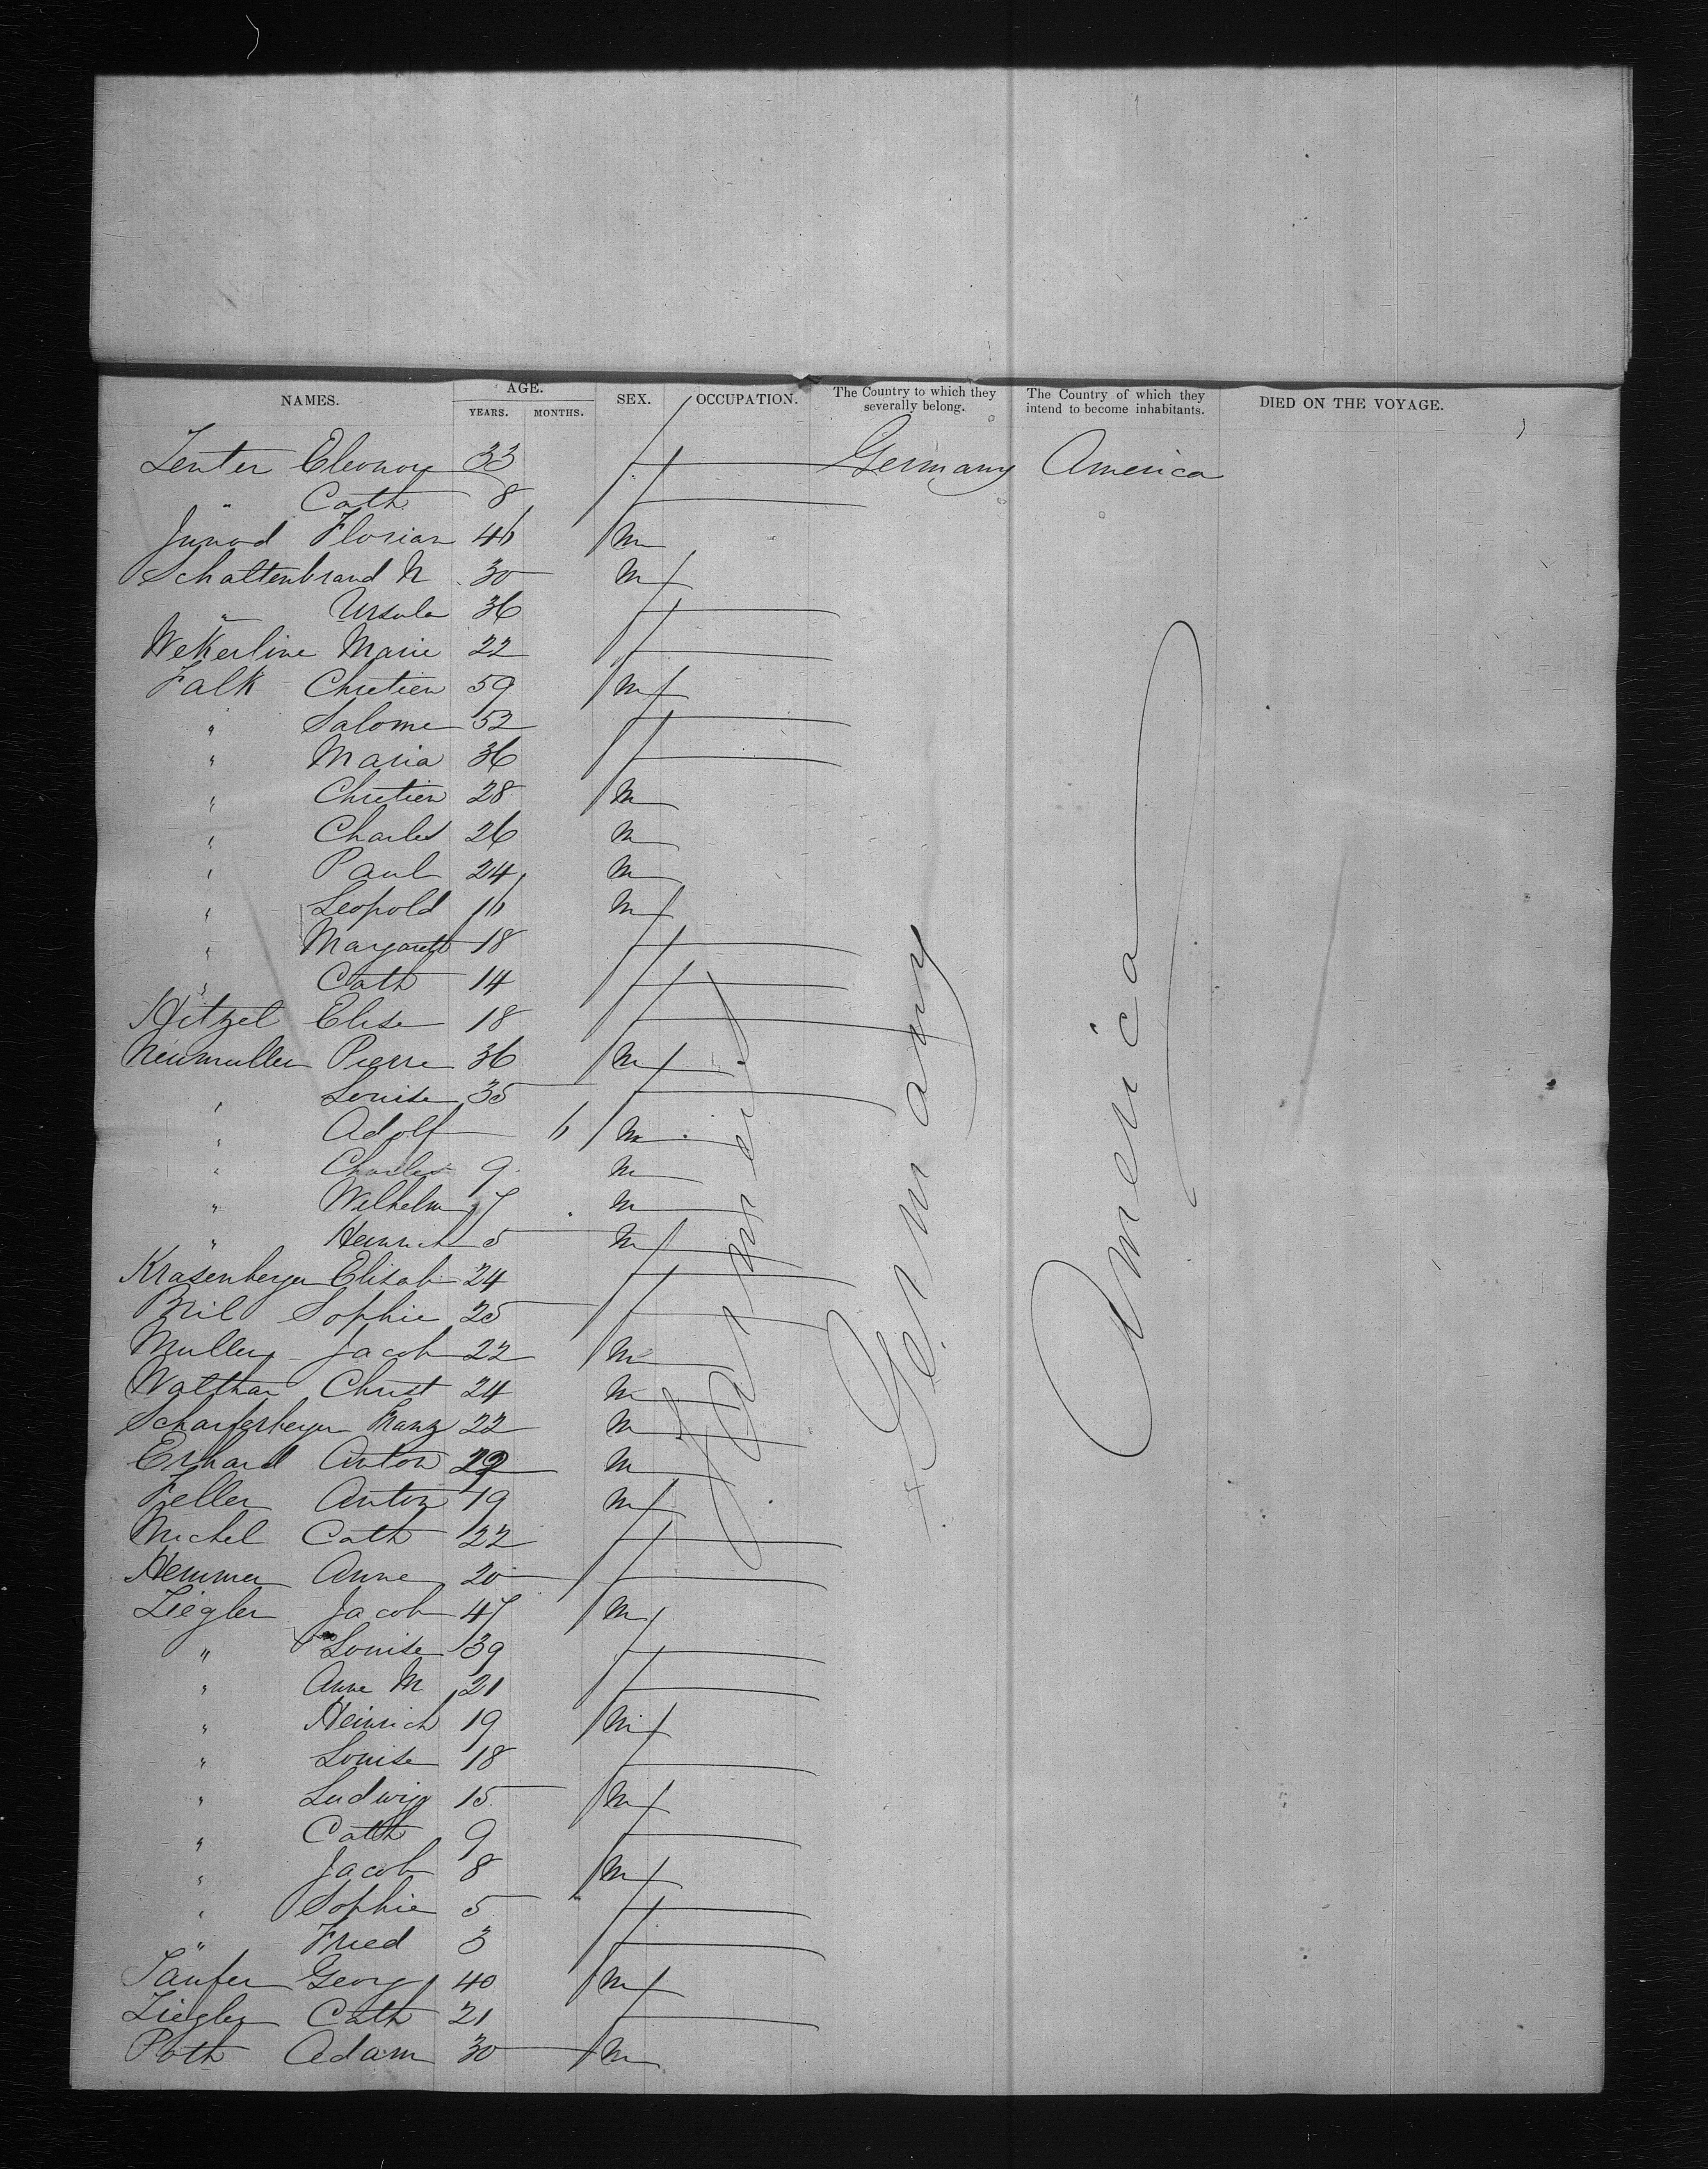 NAMES. AGE. SEX. OCCUPATION. The Country to which they severally belong. The Country of which they intend to become inhabitants. DIED ON THE VOYAGE.
YEARS. MONTHS.
Zenter Eleonore 33 f Germany America
" Cath 8 f
Junod Florian 46 m
Schaltenbrand N 30 m
" Ursula 36 f
Wekerline Marie 22 f
Falk Chretien 59 m
" Salome 52 f
" Maria 36 f
" Chretien 28 m
" Charles 26 m
" Paul 24 m
" Leopold 16 m
" Margareth 18 f
" Cath 14 f
Hitzel Elise 18 f
Neumuller Pierre 36 m
" Louise 35 f
" Adolf 6 m
" Charles 9 m
" Wilhelm 7 m
" Heinrich 5 m
Krasenberger Elisab 24 f
Bril Sophie 25 f
Muller Jacob 22 m
Walthar Christ 24 m
Scharfesberger Franz 22 m
Erhard Anton 22 m
Feller Anton 19 m
Michel Cath 22 f
Hemmer Anne 20 f
Ziegler Jacob 47 m
" Louise 39 f
" Anne M 21 f
" Heinrich 19 m
" Louise 18 f
" Ludwig 15 m
" Cath 9 f
" Jacob 8 m
" Sophie 5 f
" Fried 3 f
Taufer Georg 40 m
Ziegler Cath 21 f
Poth Adam 30 m
Farmers
Germany
America